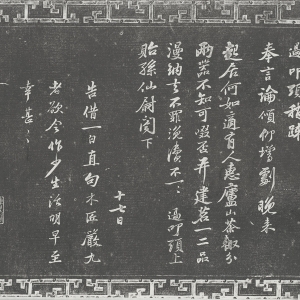 過叩頭稍疎
奉言論傾仰增劇晚來
起居何如適有人惠廬山茶輙分
兩器不知可啜否并建茗一二品
漫納去不罪浼瀆不一過叩頭上
貽孫仙尉閤下
十七日
告借一白直句木匠嚴九
者欲令作少生活明早至
幸甚